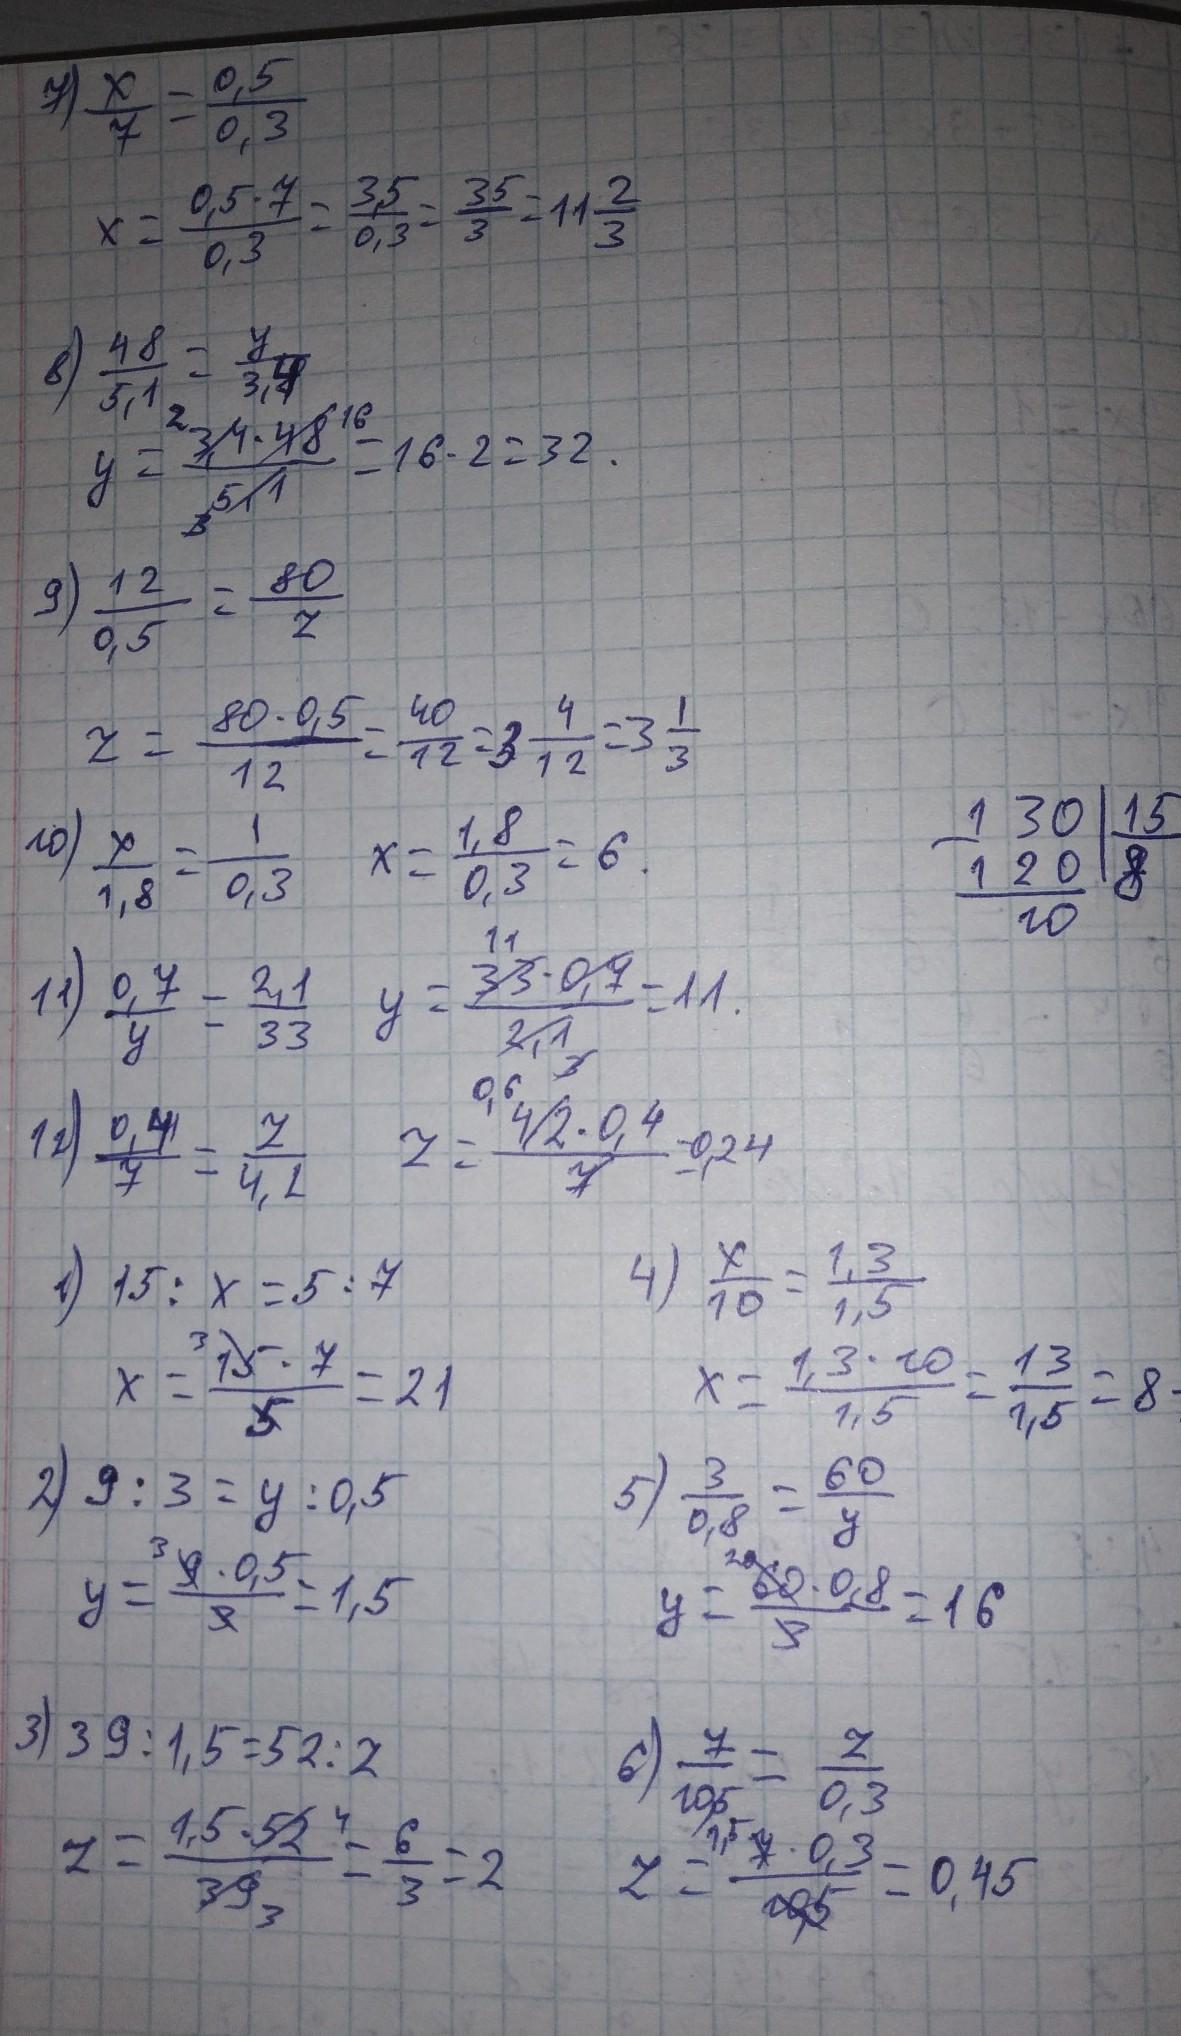 7) x/7 = 0,5/0,3
x = 0,5·7/0,3 = 3,5/0,3 = 35/3 = 11 2/3
8) 48/5,1 = y/3,4
y = 3,4·48/5,1 = 16·2 = 32.
2 16
3
9) 12/0,5 = 80/z
z = 80·0,5/12 = 40/12 = 3 4/12 = 3 1/3
10) x/1,8 = 1/0,3 x = 1,8/0,3 = 6.
130 | 15
120 8
10
11) 0,7/y = 2,1/33 y = 33·0,7/2,1 = 11.
11
3
12) 0,4/7 = z/4,2 z = 42·0,4/7 = 0,24
0,6
1) 15 : x = 5 : 7
x = 15·7/5 = 21
3
2) 9 : 3 = y : 0,5
y = 9·0,5/3 = 1,5
3
3) 39 : 1,5 = 52 : z
z = 1,5·52/39 = 6/3 = 2
4
3
4) x/10 = 1,3/1,5
x = 1,3·10/1,5 = 13/1,5 = 8
5) 3/0,8 = 60/y
y = 60·0,8/3 = 16
20
6) 7/10,5 = z/0,3
z = 7·0,3/10,5 = 0,45
1,5